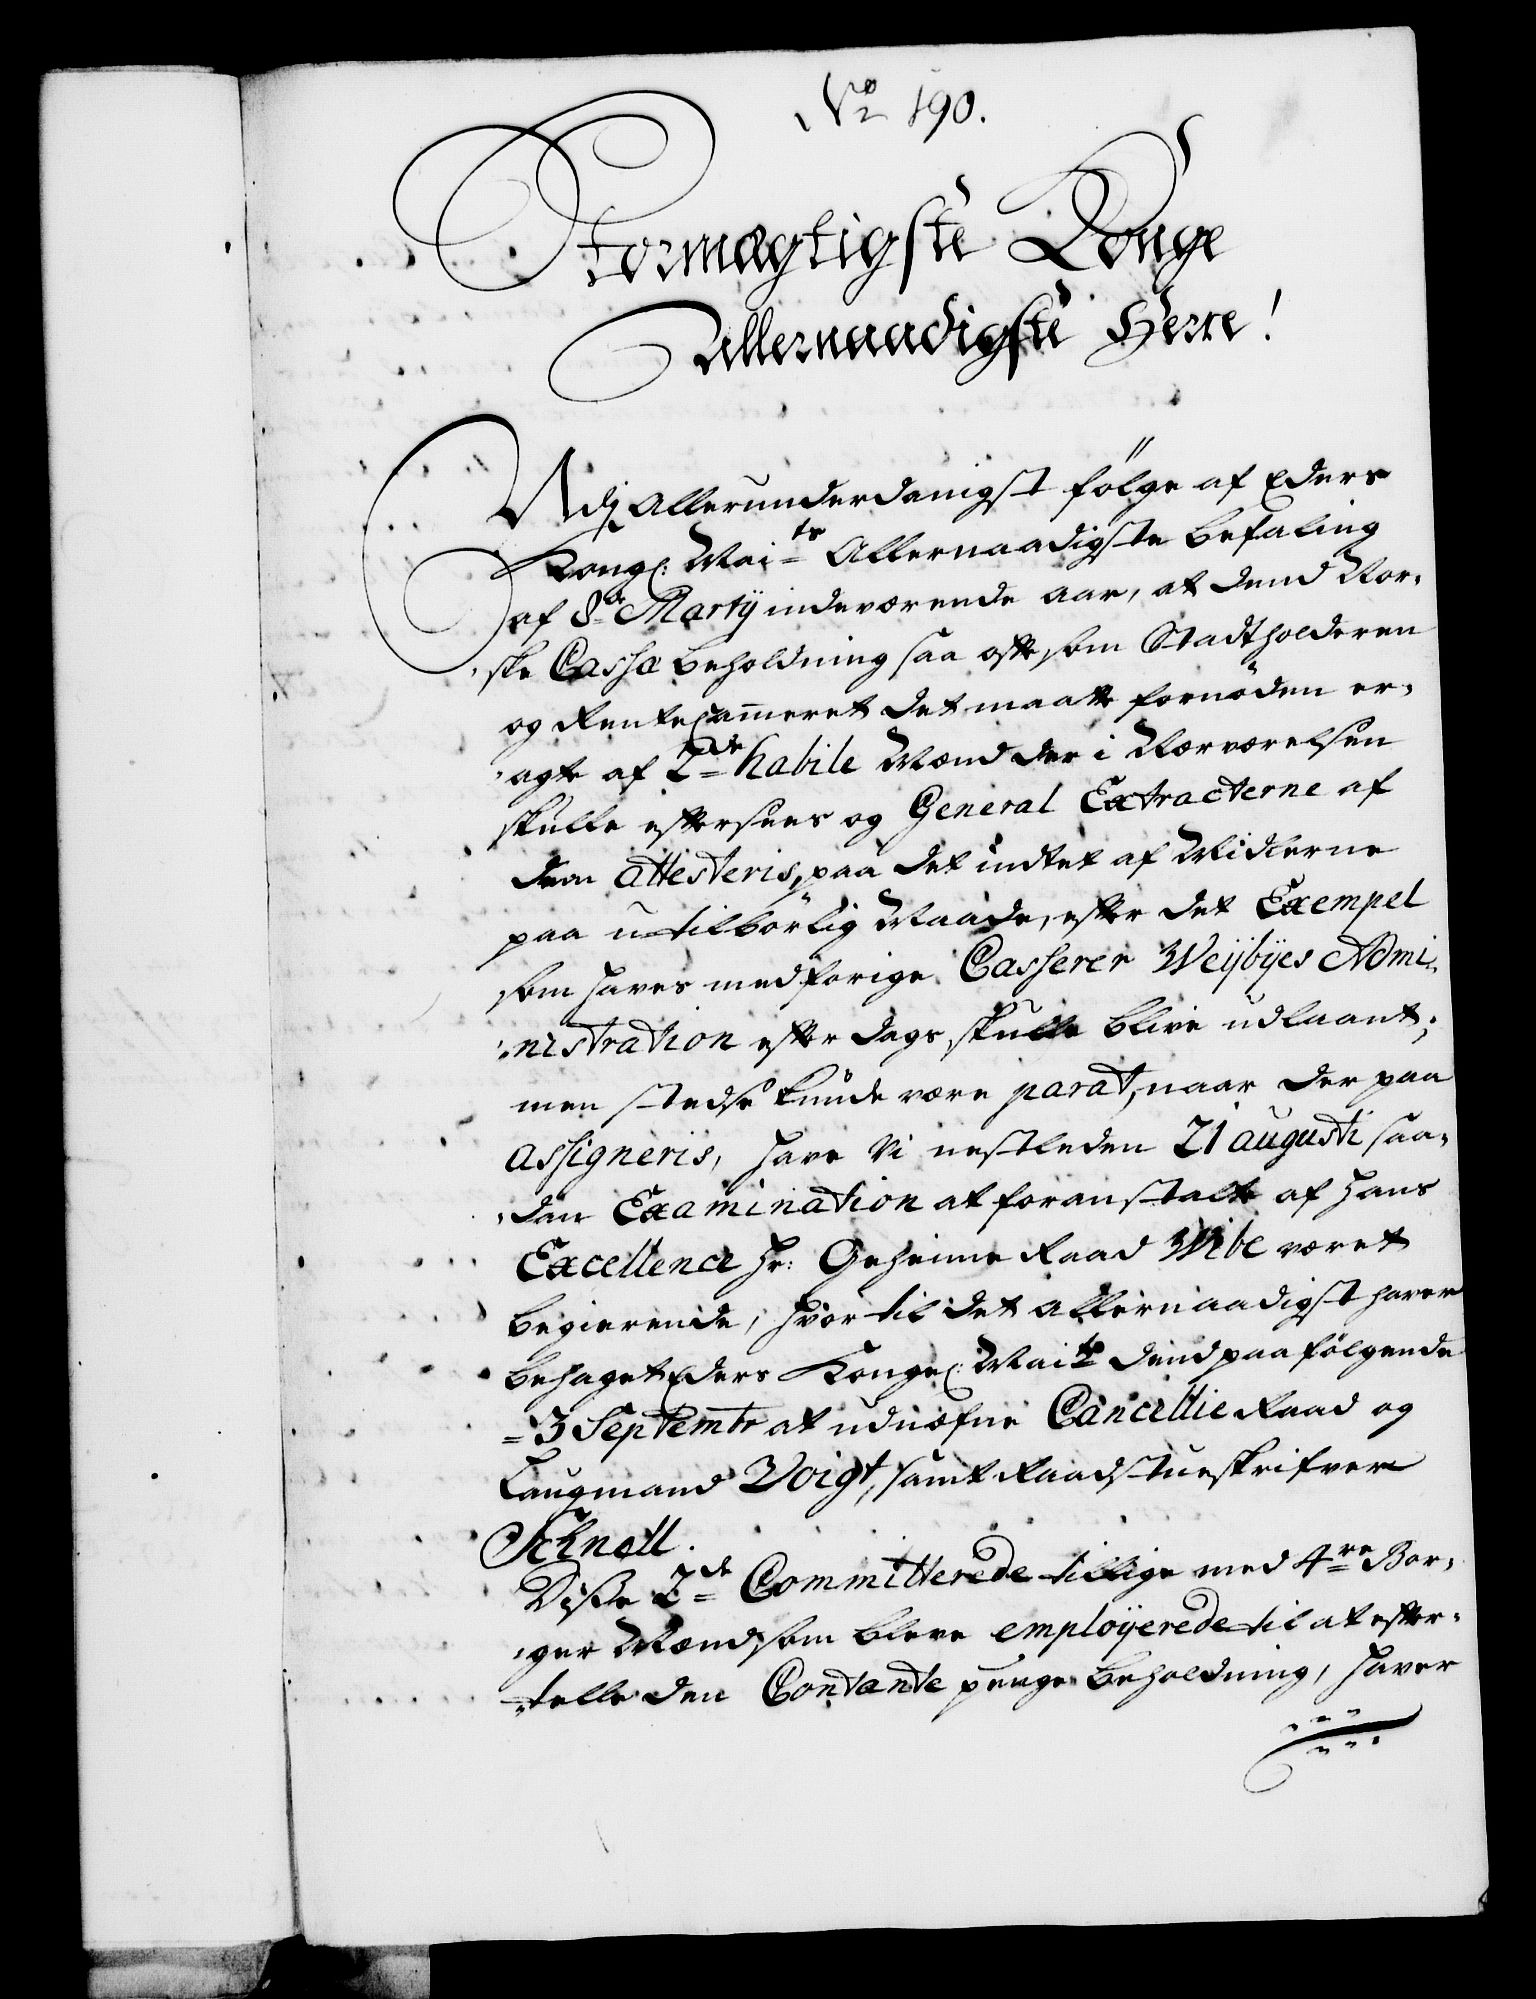 No 190.
Stormægtigste Konge
Allernaadigste Herre!
Udj Allerunderdanigst følge af Eders
Kongl: Maits Allernaadigste befaling
af 8de Martÿ indeværende aar, at dend Nor-
ske Cassæ beholdning saa ofte som Stadtholderen
og RenteCammeret det maatte fornöden er-
agte af 2de habile Mænd der i Nærværelsen
skulle eftersees og General Extracterne af
dem attesteris, paa det intet af Midlerne
paa utilbörlig Maade, efter det Exempel
som haves med forige Casserer Weÿbÿes Admi-
nistration efter dags skulle blive udlaant;
men stedse kunde være parat, naar der paa
assigneris, have Vi nestleden 21 augusti saa-
dan Examination at foranstalte af Hans
Excellence Hr: Geheime Raad Wibe været
begierende, hvor til det allernaadigst haver
behaget Eders Kongel: Maits dend paafølgende
3 Septembr at udnæfne Cancellie Raad og
Laugmand Voigt, samt Raadstueskrifver
Schnell.
Disse 2de Committerede tillige med 4re Bor-
ger Mænd som bleve emploÿerede til at efter-
telle den Contante penge beholdning, haver